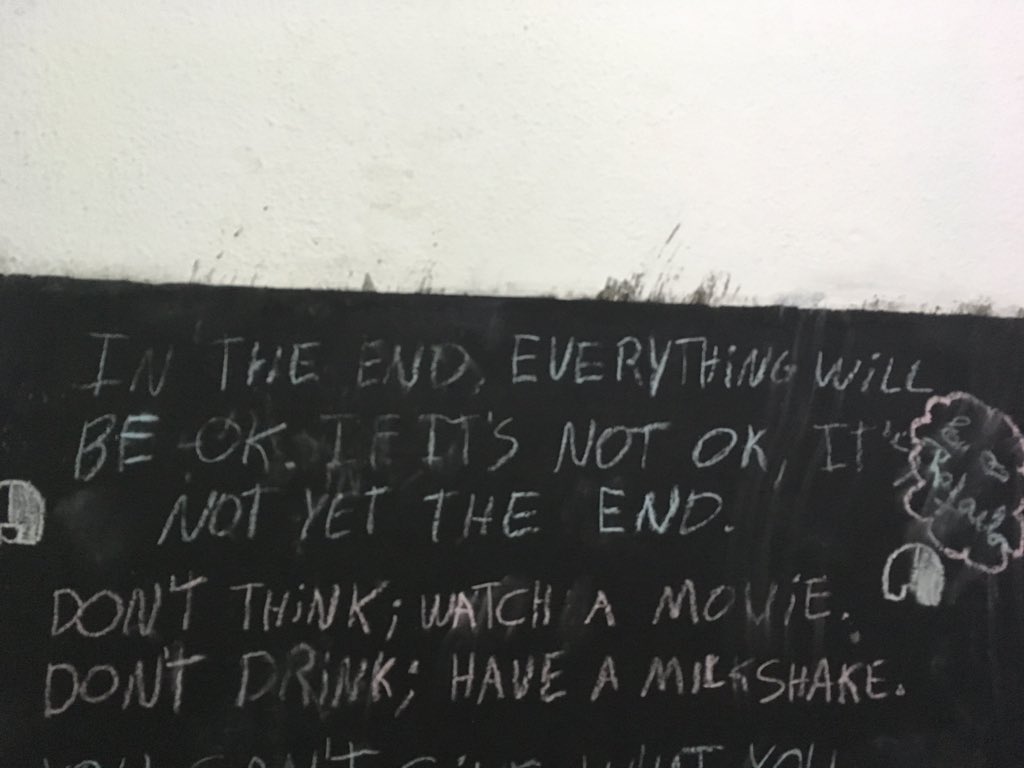 IN THE END, EVERYTHING WILL
BE OK. IF IT'S NOT OK, IT'S
NOT YET THE END.
DON'T THINK; WATCH A MOVIE.
DON'T DRINK; HAVE A MILKSHAKE.
YOU CAN'T GIVE WHAT YOU